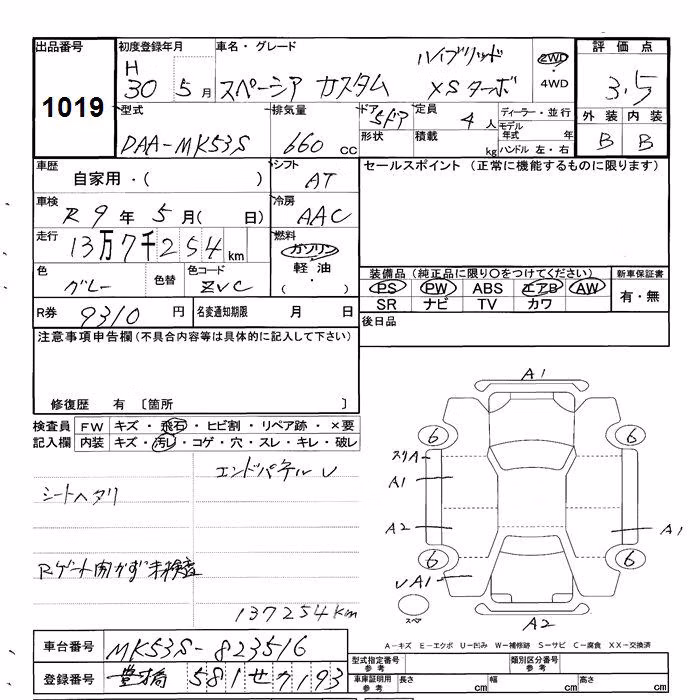 出品番号 初度登録年月 車名・グレード ハイブリッド 2WD 評価点
1019 H 30 5月 スペーシア カスタム XSターボ ・4WD 3.5
型式 排気量 ドア 5ドア 定員 4人 ディーラー・並行 外装 内装
DAA-MK53S 660cc 形状 積載 kg モデル年式 年 ハンドル 左・右 B B
車歴 自家用・( ) シフト AT セールスポイント (正常に機能するものに限ります)
車検 R9年5月( 日) 冷房 AAC
走行 13万7千254km 燃料 ガソリン・軽油・( )
色 グレー 色替 色コード ZVC
装備品(純正品に限り○をつけてください) 新車保証書
PS PW ABS エアB AW 有・無
SR ナビ TV カワ
R券 9310円 名変通知期限 月 日 後日品
注意事項申告欄(不具合内容等は具体的に記入して下さい)
修復歴 有 〔箇所 〕
検査員 FW キズ・飛石・ヒビ割・リペア跡・×要
記入欄 内装 キズ・汚レ・コゲ・穴・スレ・キレ・破レ
エンドパネルU
シートヘタリ
Rゲート開かず未検査
137254km
A1
6 6
スリA
A1
A2 A1
6 6
UA1
スペア A2
A-キズ E-エクボ U-凹み W-補修跡 S-サビ C-腐食 XX-交換済
車台番号 MK53S-823516
登録番号 豊橋 581せ7193
型式指定番号 参考 類別区分番号 参考
車庫証明用 参考 長さ cm 幅 cm 高さ cm